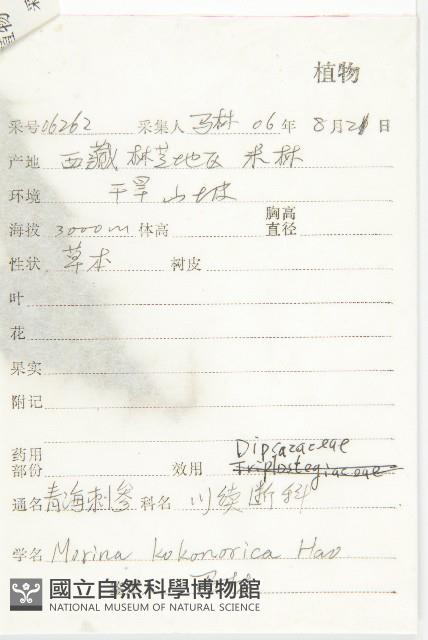 植物
采号 06262 采集人 马林 06年 8月21日
产地 西藏 林芝地区 米林
环境 干旱山坡
海拔 3000m 体高 胸高直径
性状 草本 树皮
叶
花
果实
附记
Dipcazaceae
药用部份 效用 Triplostegiaceae
通名 青海刺参 科名 川续断科
学名 Morina kokonorica Hao
國立自然科學博物館
NATIONAL MUSEUM OF NATURAL SCIENCE